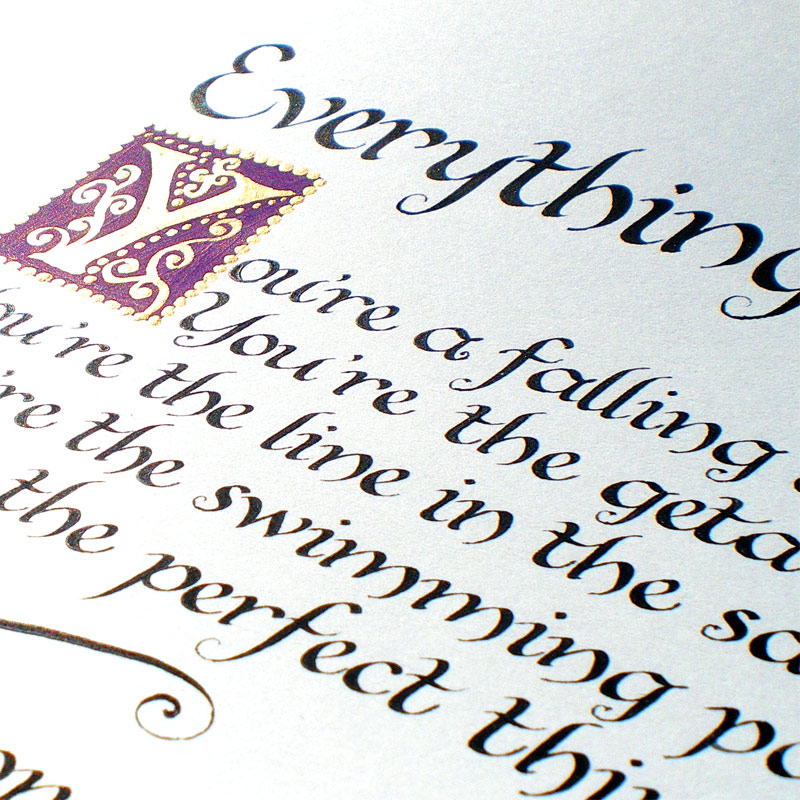 Everything
You're a falling
You're the geta
ou're the line in the sa
're the swimming po
the perfect thin
on